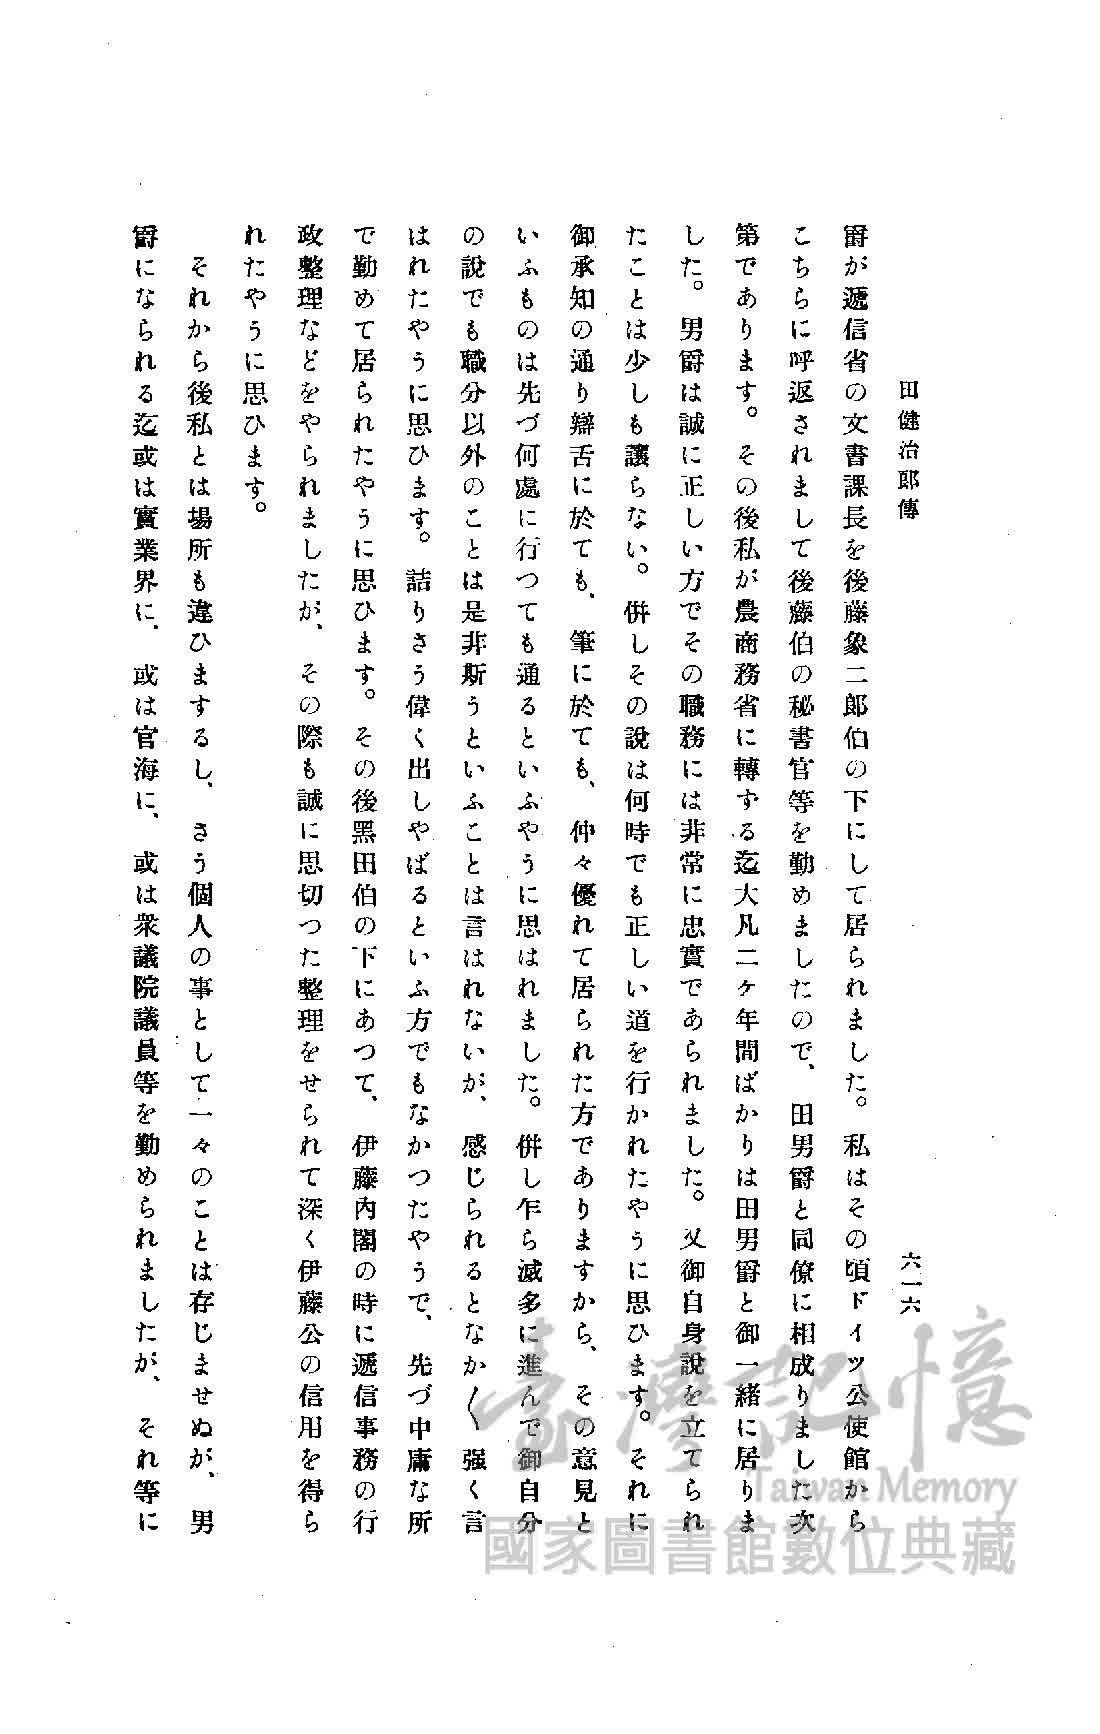 田健治郎傳
六一六
爵が遞信省の文書課長を後藤象二郎伯の下にして居られました。私はその頃ドイツ公使館から
こちらに呼返されまして後藤伯の秘書官等を勤めましたので、田男爵と同僚に相成りました次
第であります。その後私が農商務省に轉ずる迄大凡二ヶ年間ばかりは田男爵と御一緒に居りま
した。男爵は誠に正しい方でその職務には非常に忠實であられました。又御自身說を立てられ
たことは少しも讓らない。併しその說は何時でも正しい道を行かれたやうに思ひます。それに
御承知の通り辯舌に於ても、筆に於ても、仲々優れて居られた方でありますから、その意見と
いふものは先づ何處に行つても通るといふやうに思はれました。併し乍ら滅多に進んで御自分
の說でも職分以外のことは是非斯うといふことは言はれないが、感じられるとなか〱强く言
はれたやうに思ひます。詰りさう偉く出しやばるといふ方でもなかつたやうで、先づ中庸な所
で勤めて居られたやうに思ひます。その後黑田伯の下にあつて、伊藤內閣の時に遞信事務の行
政整理などをやられましたが、その際も誠に思切つた整理をせられて深く伊藤公の信用を得ら
れたやうに思ひます。
それから後私とは場所も違ひまするし、さう個人の事として一々のことは存じませぬが、男
爵になられる迄或は實業界に、或は官海に、或は衆議院議員等を勤められましたが、それ等に
臺灣記憶
Taiwan Memory
國家圖書館數位典藏